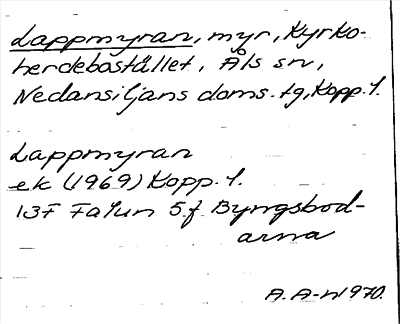 Lappmyran, myr, Kyrko-
herdebostället, Åls sn,
Nedansiljans doms. tg, Kopp. l.
Lappmyran
ek (1969) Kopp. l.
13F Falun 5f Byngsbod-
arna
A. A-n 1970.